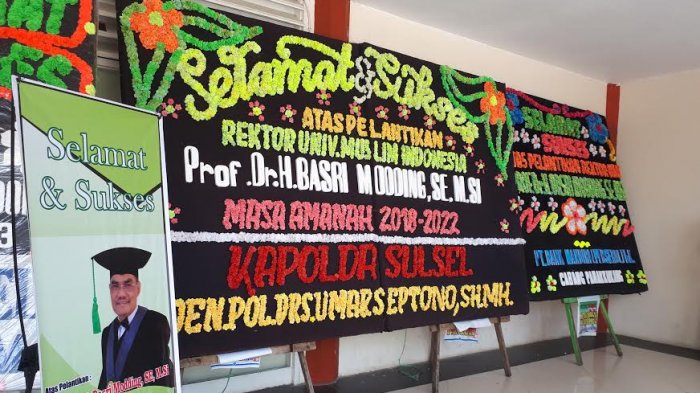 Selamat
& Sukses
Atas Pelantikan :
Basri Modding, SE, M.Si
Selamat & Sukses
ATAS PELANTIKAN
REKTOR UNIV.MUSLIM INDONESIA
Prof.Dr.H.BASRI MODDING,SE,M.SI
MASA AMANAH 2018-2022
KAPOLDA SULSEL
JEN.POL.DRS.UMAR SEPTONO,SH.MH.
SELAMAT
SUKSES
ATAS PELANTIKAN REKTOR UMI